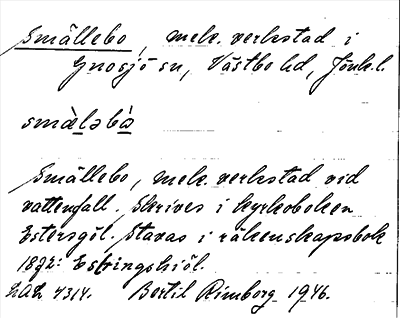 Smällebo, mek. verkstad i
Gnosjö sn, Västbo hd, Jönk. l.
smæ̀ləbà
Smällebo, mek. verkstad vid
vattenfall. Skrives i kyrkoboken
Estersgöl. Stavas i räkenskapsbok
1892: Estringshiöl.
LAL 4314. Bertil Rimborg 1946.